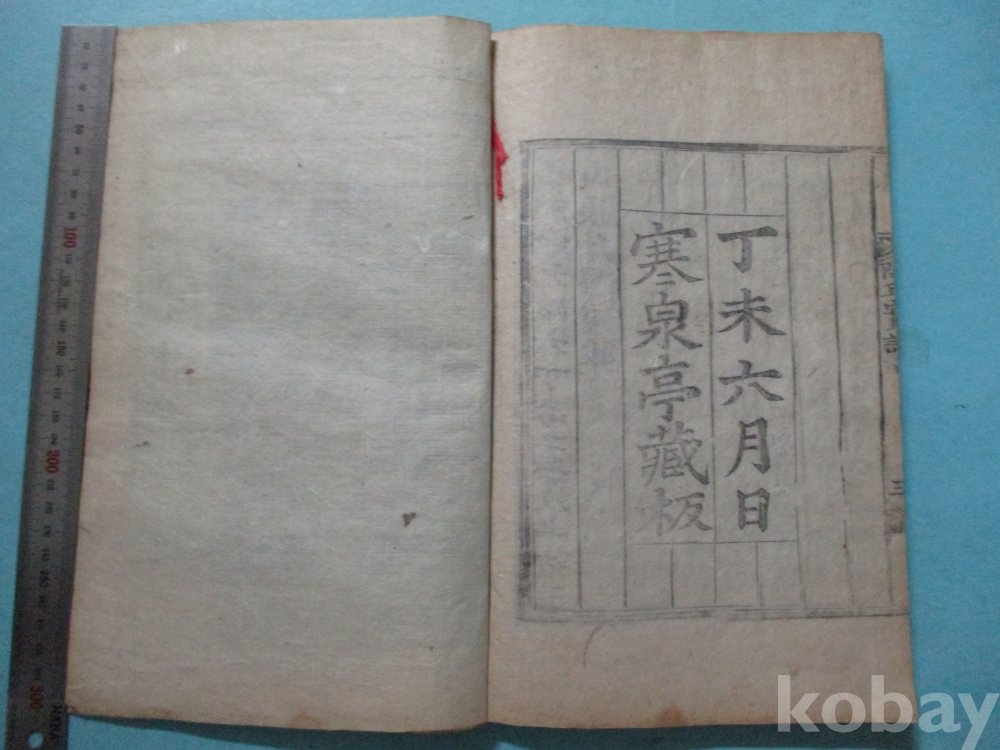 丁未六月日
寒泉亭藏板
kobay